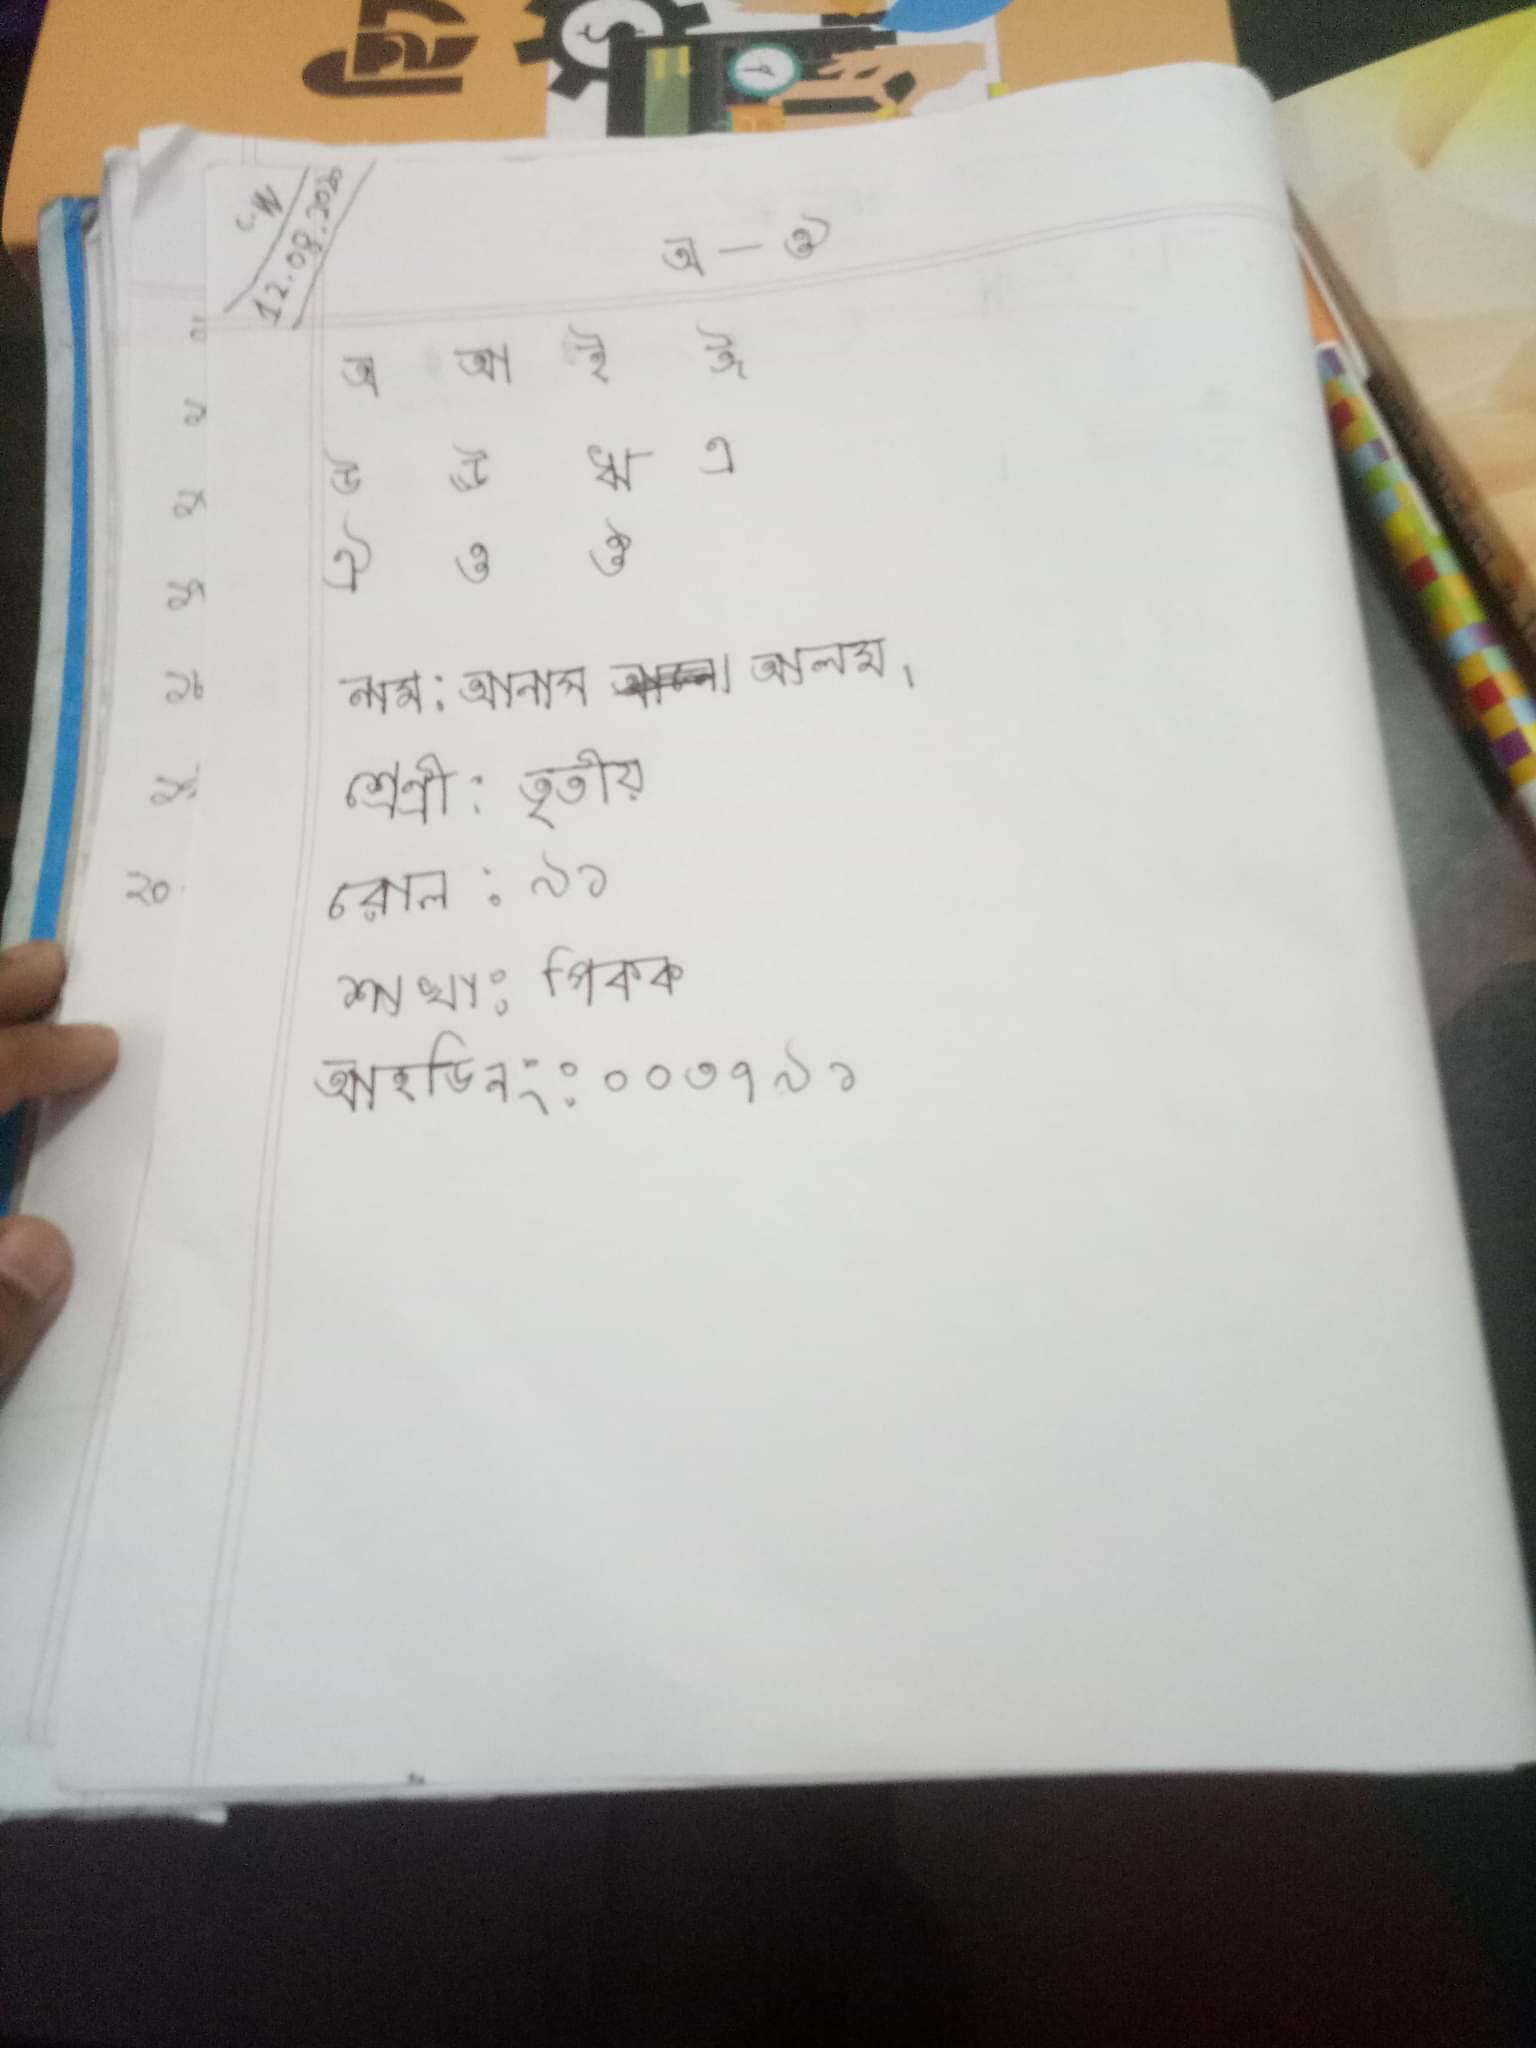 C.W
12.08.2020
অ — ঔ
অ আ ই ঈ
উ ঊ ঋ এ
ঐ ও ঔ
নাম: আনাস আলম।
শ্রেণী: তৃতীয়
রোল: ৯১
শাখা: পিকক
আইডিনং: ০০৩৭৯১
২০.